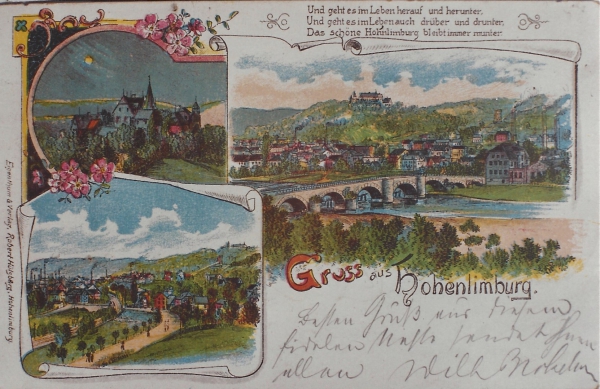 Und geht es im Leben herauf und herunter,
Und geht es im Leben auch drüber und drunter,
Das schöne Hohenlimburg bleibt immer munter.
Eigenthum & Verlag, Robert Hohenlimburg.
Gruss aus Hohenlimburg.
Besten Gruß aus diesem
fidelen Neste sendet Ihnen
allen Wilh